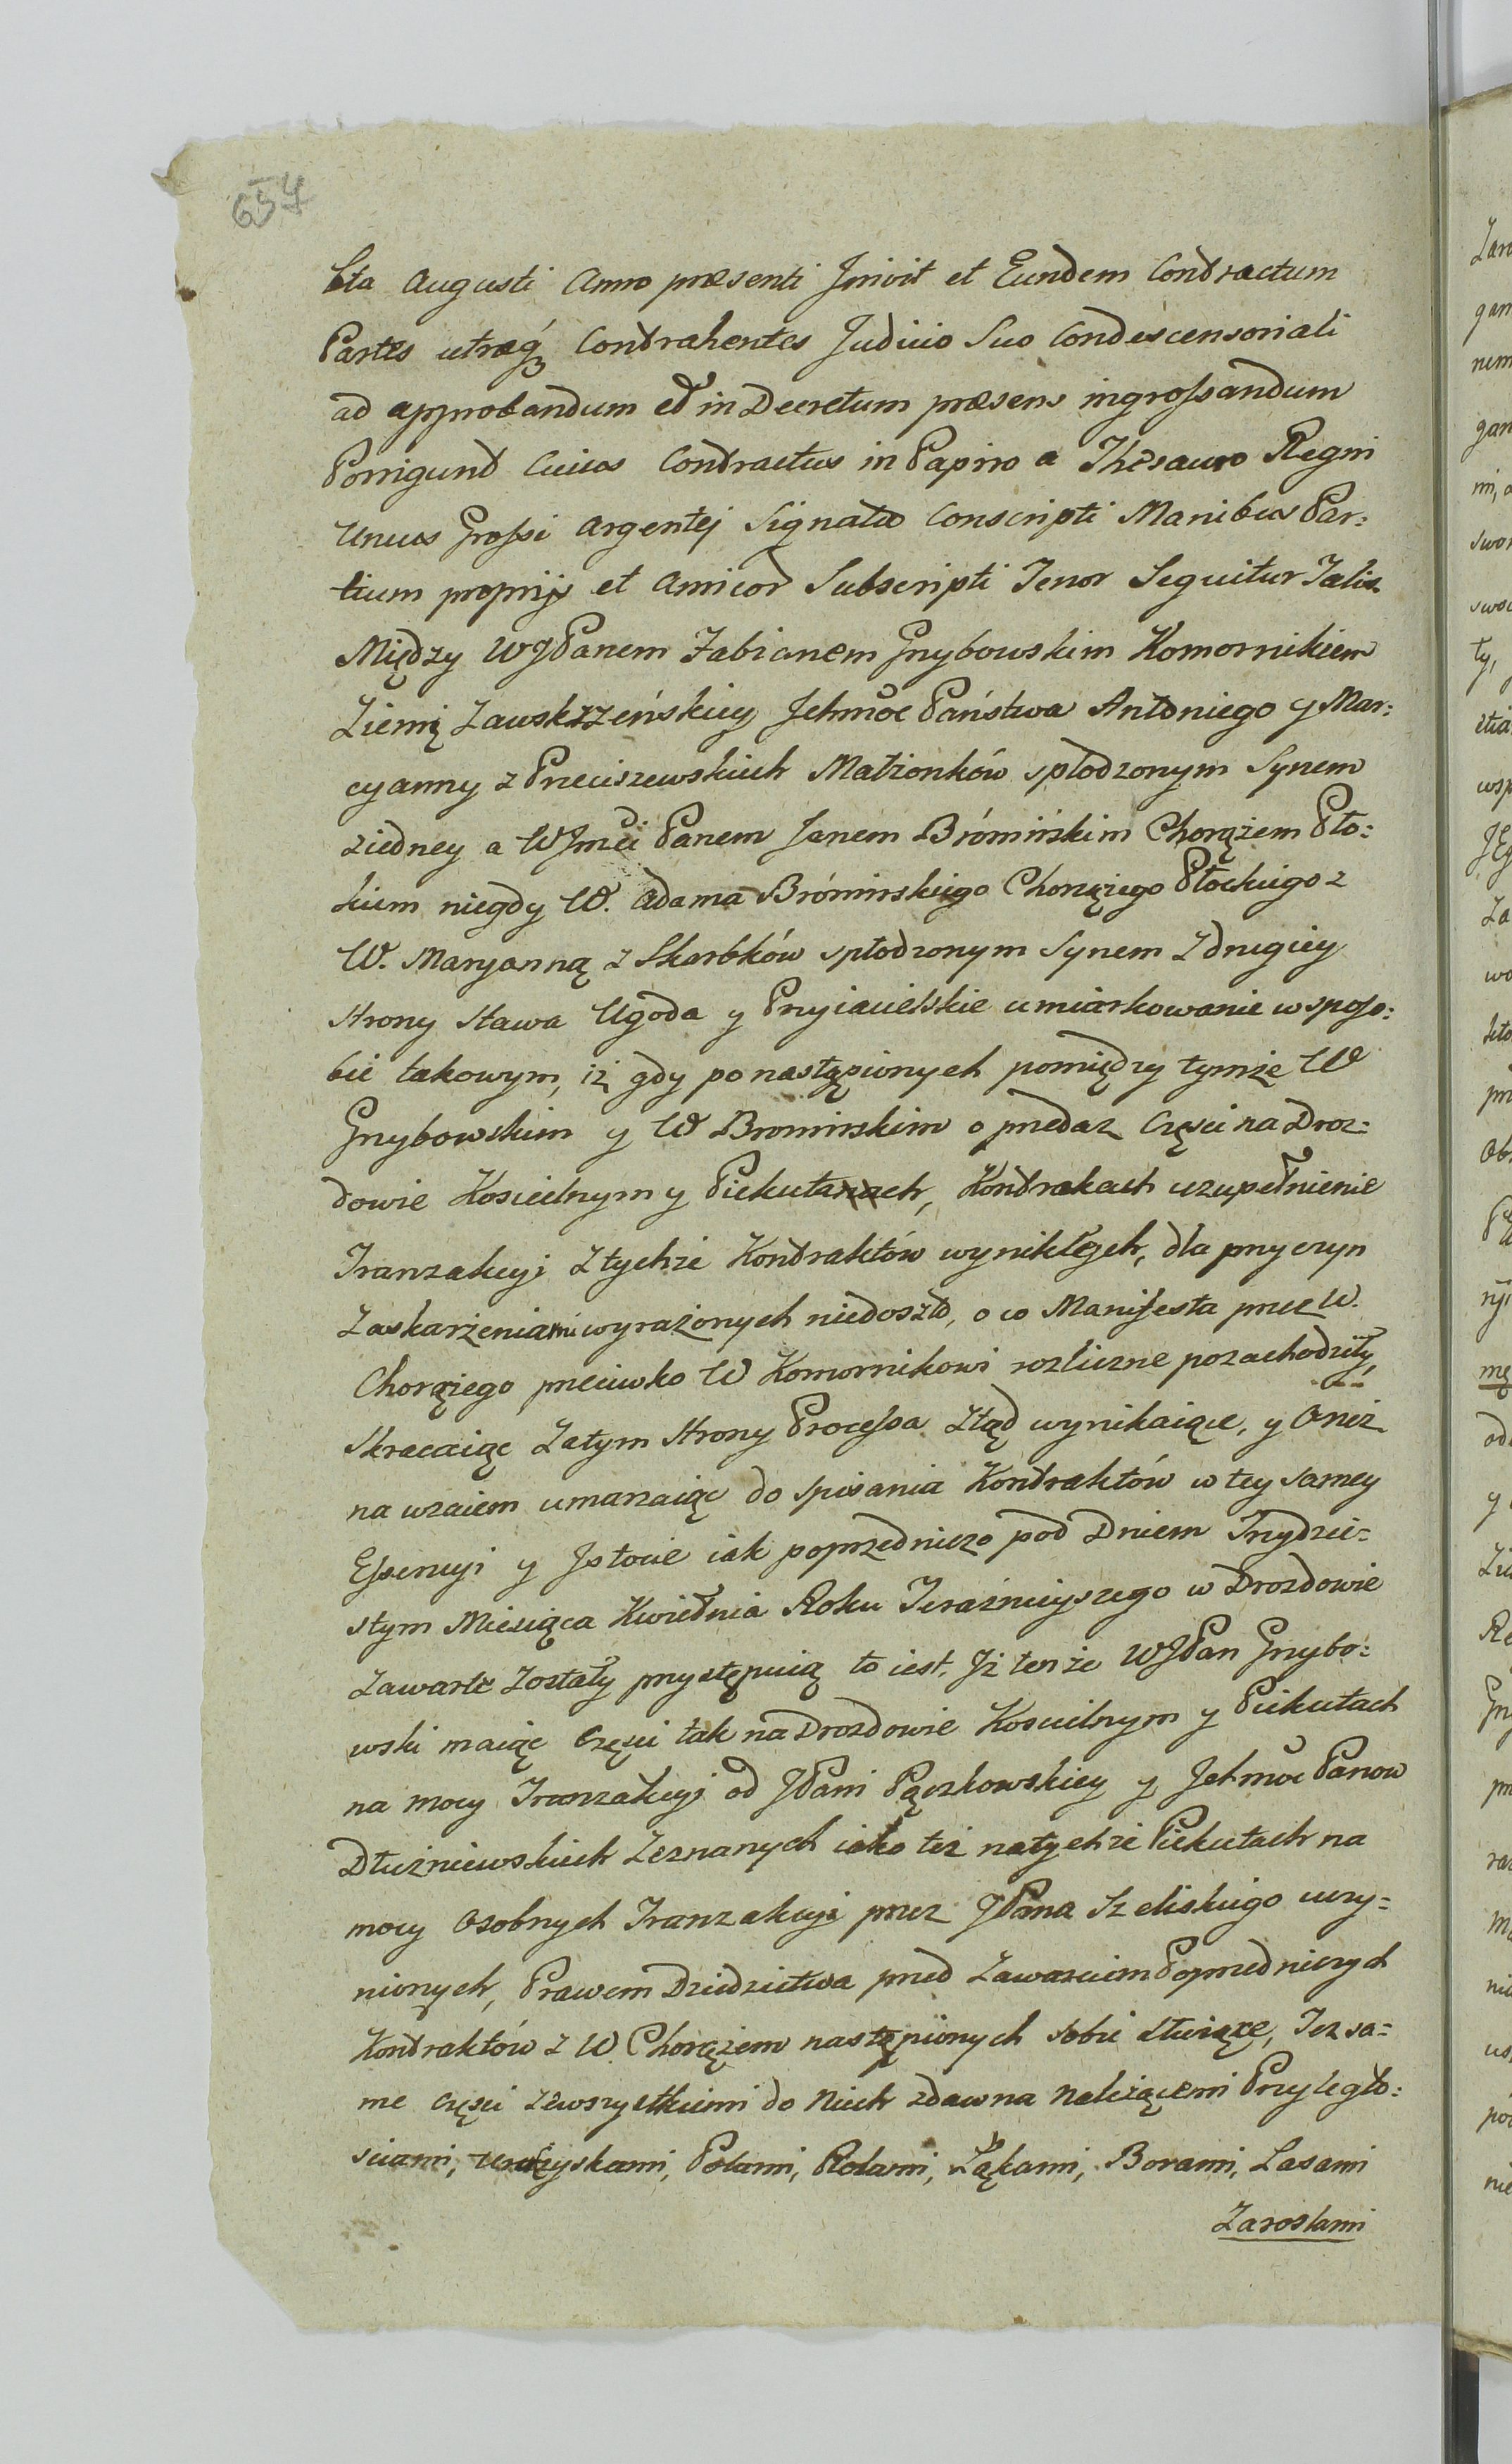 654
6ta Augusti Anno præsenti Jnivit et Eundem Contractum
Partes utraeq3 Contrahentes Judicio Suo Condescensoriali
ad approbandum et in Decretum præsens ingrossandum
Porrigunt Cuius Contractus in Papiro a Thesauro Regni
Unius Grossi argentej Signato Conscripti Manibus Par:
tium proprijs et Amicor Subscripti Tenor Sequitur Talis
Między WJPanem Fabianem Grzybowskim Komornikiem
Ziemi Zawskrzeńskiey Jchmośc Państwa Antoniego y Mar:
cyanny z Przeciszewskich Małżonków spłodzonym Synem
ziedney a WJmći Panem Janem Brómirskim Chorążem Pło:
kiem niegdy W. Adama Brómirskiego Chorążego Płockiego z
W. Maryanną z Skarbków spłodzonym Synem z drugiey
strony stawa Ugoda y Przyiacielskie umiarkowanie w sposo:
bie takowym, iż gdy po nastąpionych pomiędzy tymże W
Grzybowskim y W Bromirskim o przedaz Częsci na Droz:
dowie Koscielnym y Piekutach, Kontrakach uzupełnienie
Tranzakcyi z tychże Kontraktów wynikłych, dla przyczyn
Zaskarżeniami wyrażonych niedoszło, o co Manifesta przez W.
Chorążego przeciwko W Komornikowi rozliczne pozachodziły,
skracaiąc Zatym strony Processa ztąd wynikaiące, y Oneż
na wzaiem umarzaiąc do spisania Kontraktów w tey samey
Essencyi y Jstocie iak poprzedniczo pod Dniem Trzydzie=
stym Miesiąca Kwietnia Roku Teraźnieyszego w Drozdowie
Zawarte Zostały przystępuią to iest, Jż tenże WJPan Grzybo:
wski maiąc Częsci tak na Drozdowie Koscielnym y Piekutach
na mocy Tranzakcyi od JPani Pączkowskiey y Jchmośc Panow
Dłużniewskich Zeznanych iako też na tychże Piekutach na
mocy osobnych Tranzakcyi przez JPana Szeliskiego uczy=
nionych, Prawem Dziedzictwa przed Zawarciem Poprzedniczych
Kontraktów z W Chorążem nastąpionych sobie służące, Tez sa=
me części zewszystkiemi do Nich zdawna należącemi Przyległo:
sciami, Polami, Rolami, Łąkami, Borami, Lasami
Zaroslami